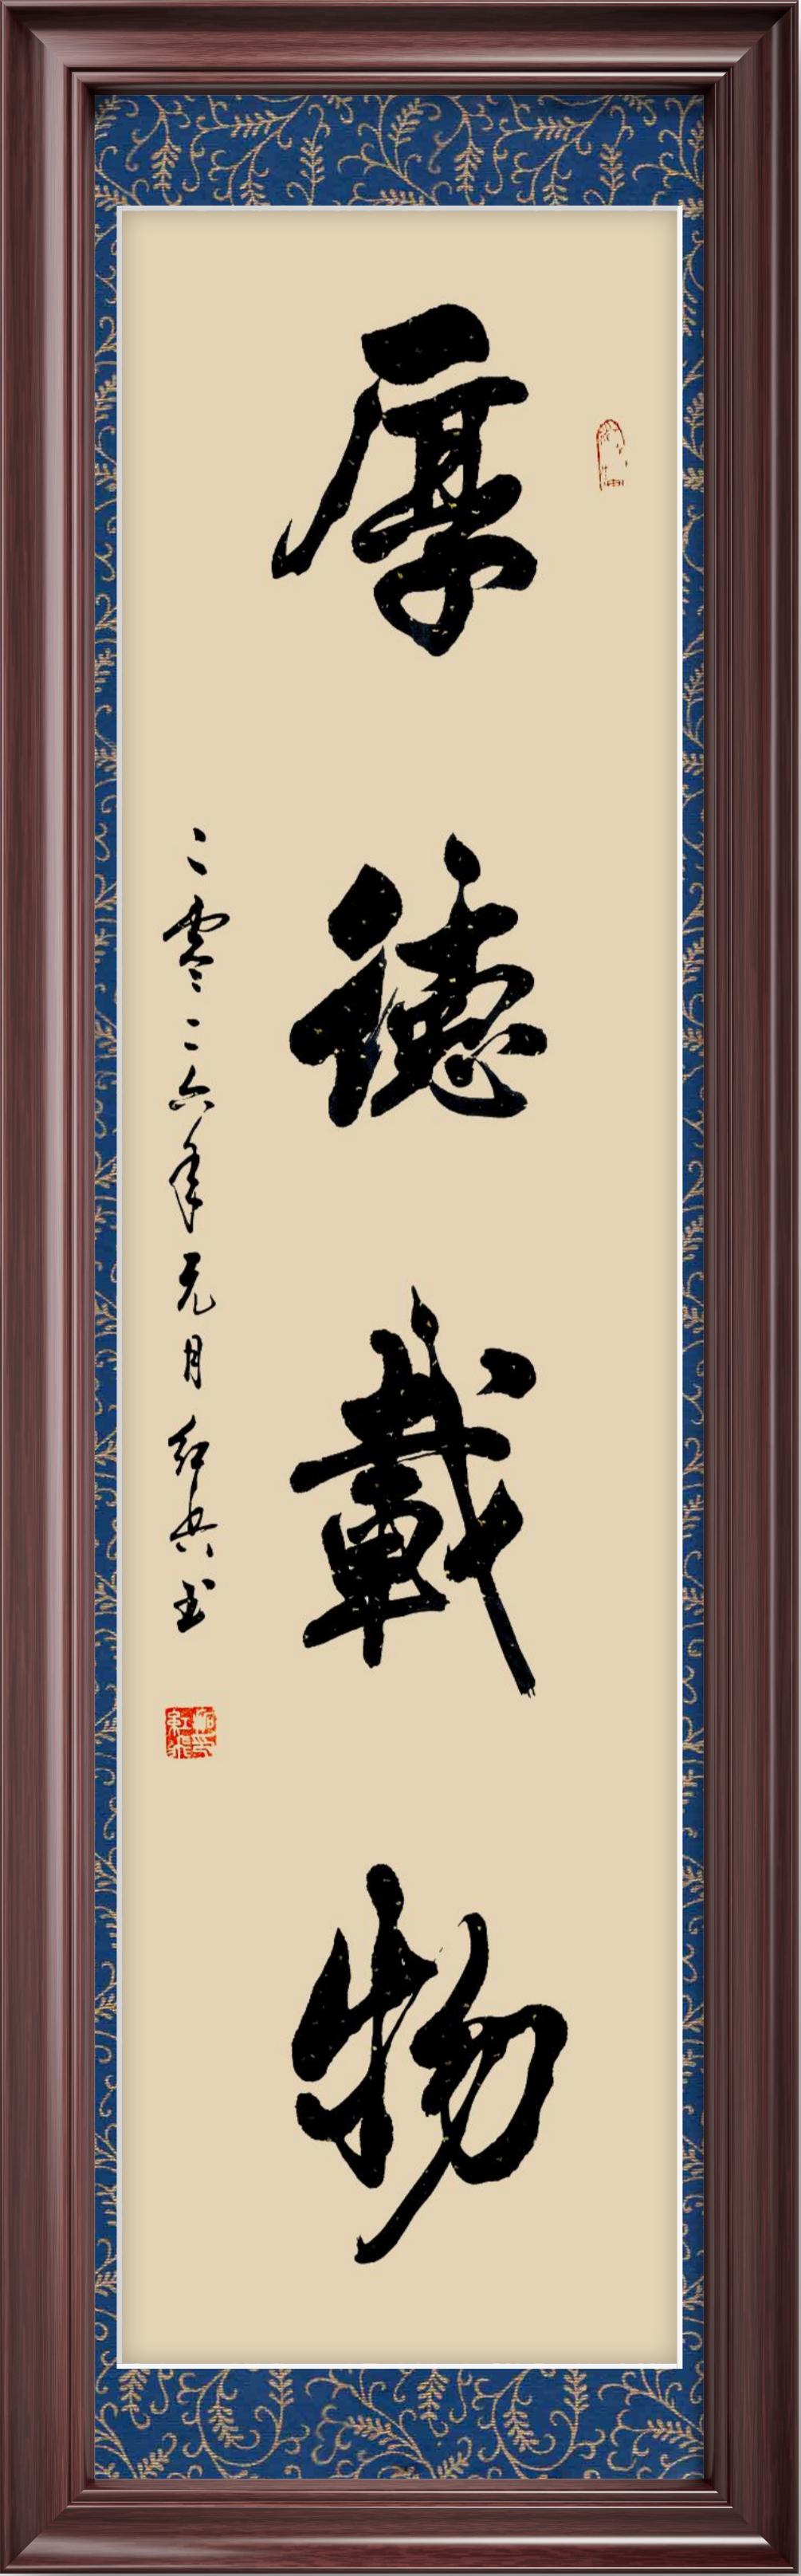 厚德載物
二零二六年元月紅兵书